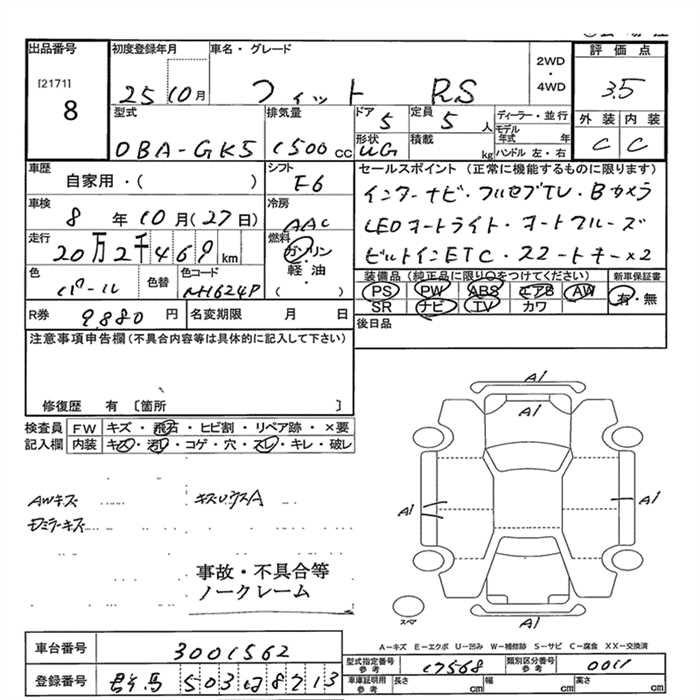 出品番号 初度登録年月 車名・グレード 2WD・4WD 評価点
[2171] 8 25 10月 フィット RS 3.5
型式 排気量 ドア 定員 ディーラー・並行 外装 内装
DBA-GK5 1500cc 5 5人 モデル年式 年 C C
形状 UG 積載 kg ハンドル 左・右
車歴 シフト セールスポイント (正常に機能するものに限ります)
自家用・( ) F6 インターナビ・フルセグTV・Bカメラ
車検 8年10月(27日) 冷房 AAC LEDオートライト・オートクルーズ
走行 20万2千469km 燃料 ガソリン・軽油 ( ) ビルトインETC・スマートキー×2
色 色替 色コード 装備品(純正品に限り○をつけてください) 新車保証書
パール NH624P PS PW ABS エアB AW 有・無
SR ナビ TV カワ
R券 9,880円 名変期限 月 日 後日品
注意事項申告欄(不具合内容等は具体的に記入して下さい)
修復歴 有 〔箇所 〕
検査員記入欄 FW キズ・飛石・ヒビ割・リペア跡・×要
内装 キズ・汚れ・コゲ・穴・スレ・キレ・破レ
A1
A1
AWキズ キズUウスA
A1 A1
事故・不具合等
ノークレーム
スペア A1
A-キズ E-エクボ U-凹み W-補修跡 S-サビ C-腐食 XX-交換済
車台番号 3001562
型式指定番号 参考 17568 類別区分番号 参考 0011
登録番号 群馬 503 8713
車庫証明用 参考 長さ cm 幅 cm 高さ cm